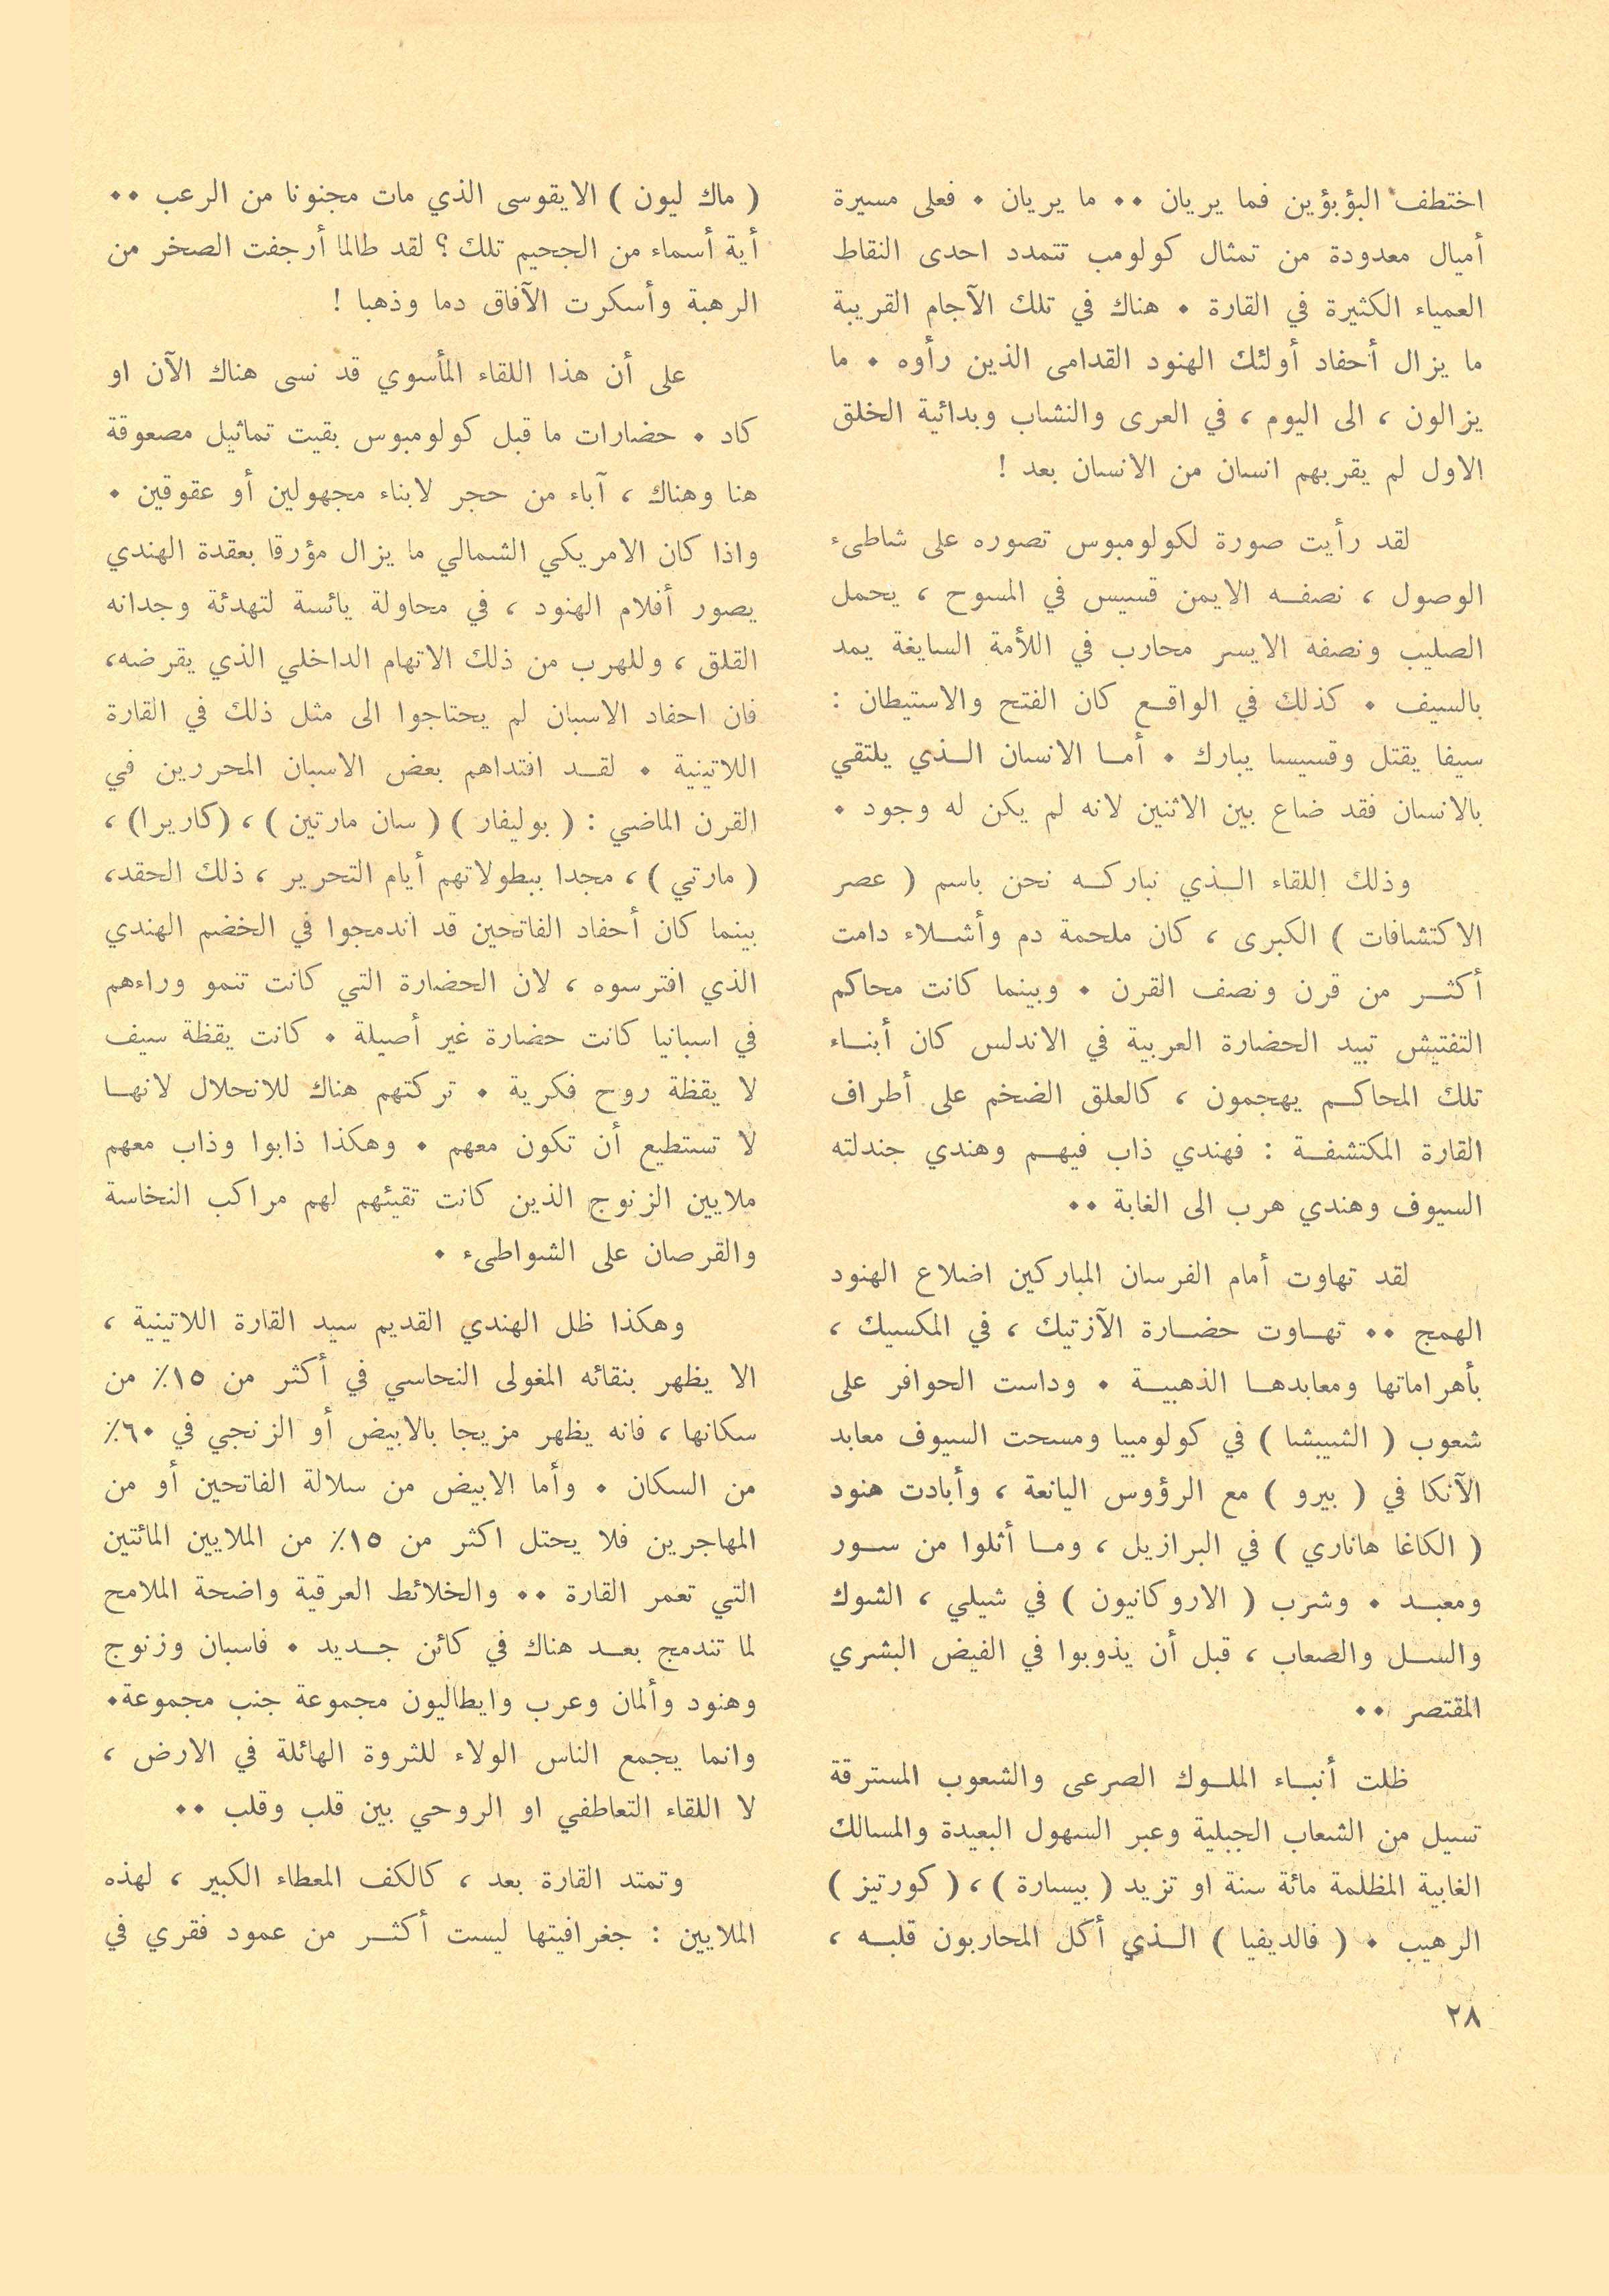 اختطف البؤبؤين فما يريان ٠٠ ما يريان ٠ فعلى مسيرة
أميال معدودة من تمثال كولومب تتمدد احدى النقاط
العمياء الكثيرة في القارة ٠ هناك في تلك الآجام القريبة
ما يزال أحفاد أولئك الهنود القدامى الذين رأوه ٠ ما
يزالون ، الى اليوم ، في العرى والنشاب وبدائية الخلق
الاول لم يقربهم انسان من الانسان بعد !
لقد رأيت صورة لكولومبوس تصوره على شاطىء
الوصول ، نصفه الايمن قسيس في المسوح ، يحمل
الصليب ونصفه الايسر محارب في اللأمة السابغة يمد
بالسيف ٠ كذلك في الواقع كان الفتح والاستيطان :
سيفا يقتل وقسيسا يبارك ٠ أما الانسان الذي يلتقي
بالانسان فقد ضاع بين الاثنين لانه لم يكن له وجود ٠
وذلك اللقاء الذي نباركه نحن باسم ( عصر
الاكتشافات ) الكبرى ، كان ملحمة دم وأشلاء دامت
أكثر من قرن ونصف القرن ٠ وبينما كانت محاكم
التفتيش تبيد الحضارة العربية في الاندلس كان أبناء
تلك المحاكم يهجمون ، كالعلق الضخم على أطراف
القارة المكتشفة : فهندي ذاب فيهم وهندي جندلته
السيوف وهندي هرب الى الغابة ٠٠
لقد تهاوت أمام الفرسان المباركين اضلاع الهنود
الهمج ٠٠ تهاوت حضارة الآزتيك ، في المكسيك ،
بأهراماتها ومعابدها الذهبية ٠ وداست الحوافر على
شعوب ( الشيبشا ) في كولومبيا ومسحت السيوف معابد
الآنكا في ( بيرو ) مع الرؤوس اليانعة ، وأبادت هنود
( الكاغا هاناري ) في البرازيل ، وما أثلوا من سور
ومعبد ٠ وشرب ( الاروكانيون ) في شيلي ، الشوك
والسل والصعاب ، قبل أن يذوبوا في الفيض البشري
المقتصر ٠٠
ظلت أنباء الملوك الصرعى والشعوب المسترقة
تسيل من الشعاب الجبلية وعبر السهول البعيدة والمسالك
الغابية المظلمة مائة سنة او تزيد ( بيسارة ) ، ( كورتيز )
الرهيب ٠ ( فالديفيا ) الذي أكل المحاربون قلبه ،
( ماك ليون ) الايقوسى الذي مات مجنونا من الرعب ٠٠
أية أسماء من الجحيم تلك ؟ لقد طالما أرجفت الصخر من
الرهبة وأسكرت الآفاق دما وذهبا !
على أن هذا اللقاء المأسوي قد نسى هناك الآن او
كاد ٠ حضارات ما قبل كولومبوس بقيت تماثيل مصعوقة
هنا وهناك ، آباء من حجر لابناء مجهولين أو عقوقين ٠
واذا كان الامريكي الشمالي ما يزال مؤرقا بعقدة الهندي
يصور أفلام الهنود ، في محاولة يائسة لتهدئة وجدانه
القلق ، وللهرب من ذلك الاتهام الداخلي الذي يقرضه،
فان احفاد الاسبان لم يحتاجوا الى مثل ذلك في القارة
اللاتينية ٠ لقد افتداهم بعض الاسبان المحررين في
القرن الماضي : ( بوليفار ) ( سان مارتين ) ، (كاريرا) ،
( مارتي ) ، مجدا ببطولاتهم أيام التحرير ، ذلك الحقد،
بينما كان أحفاد الفاتحين قد اندمجوا في الخضم الهندي
الذي افترسوه ، لان الحضارة التي كانت تنمو وراءهم
في اسبانيا كانت حضارة غير أصيلة ٠ كانت يقظة سيف
لا يقظة روح فكرية ٠ تركتهم هناك للانحلال لانها
لا تستطيع أن تكون معهم ٠ وهكذا ذابوا وذاب معهم
ملايين الزنوج الذين كانت تقيئهم لهم مراكب النخاسة
والقرصان على الشواطىء ٠
وهكذا ظل الهندي القديم سيد القارة اللاتينية ،
الا يظهر بنقائه المغولى النحاسي في أكثر من ١٥٪ من
سكانها ، فانه يظهر مزيجا بالابيض أو الزنجي في ٦٠٪
من السكان ٠ وأما الابيض من سلالة الفاتحين أو من
المهاجرين فلا يحتل اكثر من ١٥٪ من الملايين المائتين
التي تعمر القارة ٠٠ والخلائط العرقية واضحة الملامح
لما تندمج بعد هناك في كائن جديد ٠ فاسبان وزنوج
وهنود وألمان وعرب وايطاليون مجموعة جنب مجموعة٠
وانما يجمع الناس الولاء للثروة الهائلة في الارض ،
لا اللقاء التعاطفي او الروحي بين قلب وقلب ٠٠
وتمتد القارة بعد ، كالكف المعطاء الكبير ، لهذه
الملايين : جغرافيتها ليست أكثر من عمود فقري في
٢٨